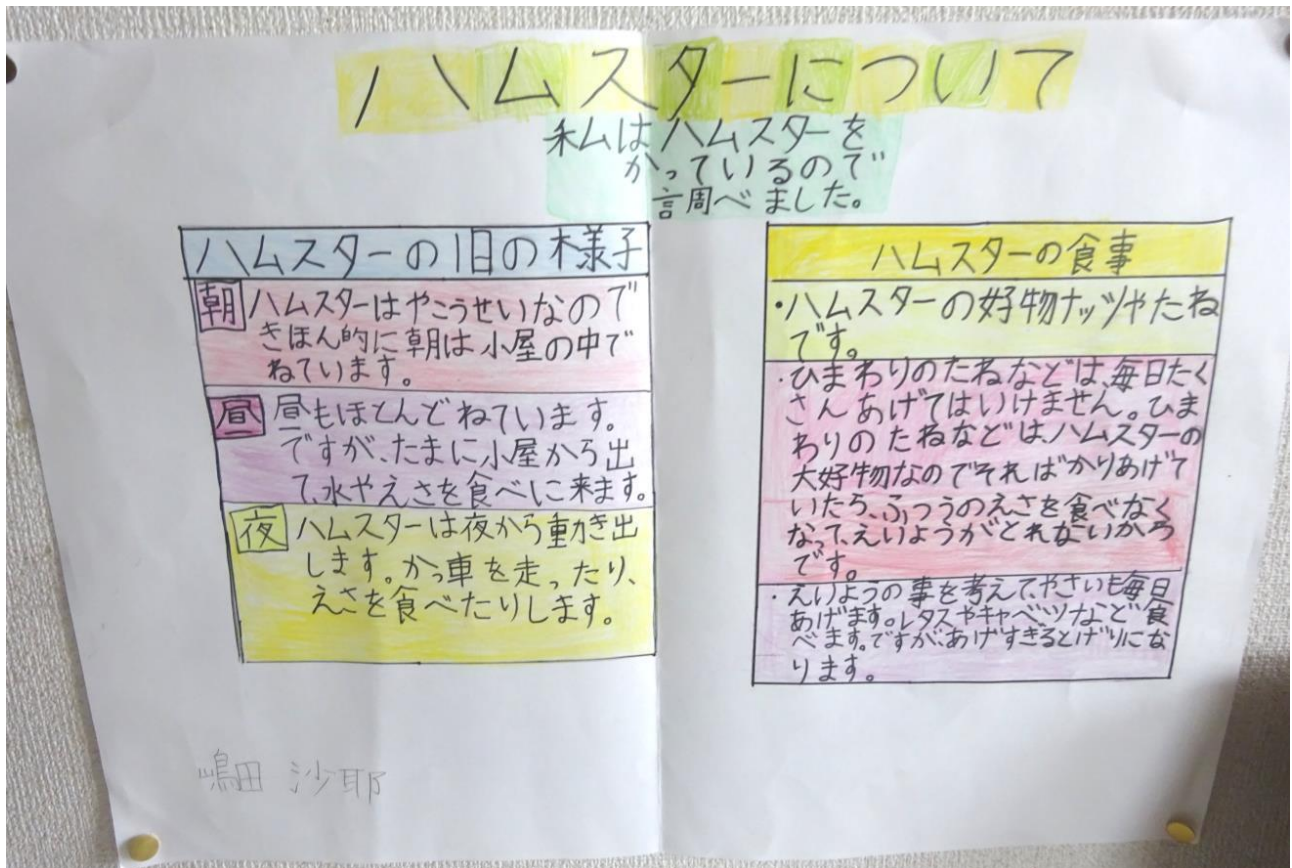 ハムスターについて
私はハムスターを
かっているので
調べました。
ハムスターの1日の様子
朝 ハムスターはやこうせいなので
きほん的に朝は小屋の中で
ねています。
昼 昼もほとんどねています。
ですが、たまに小屋から出
て、水やえさを食べに来ます。
夜 ハムスターは夜から動き出
します。かっ車を走ったり、
えさを食べたりします。
ハムスターの食事
・ハムスターの好物ナッツやたね
です。
・ひまわりのたねなどは、毎日たく
さんあげてはいけません。ひま
わりのたねなどは、ハムスターの
大好物なのでそればかりあげて
いたら、ふつうのえさを食べなく
なって、えいようがとれないから
です。
・えいようの事を考えて、やさいも毎日
あげます。レタスやキャベツなど食
べます。ですが、あげすぎるとげりにな
ります。
嶋田 沙耶